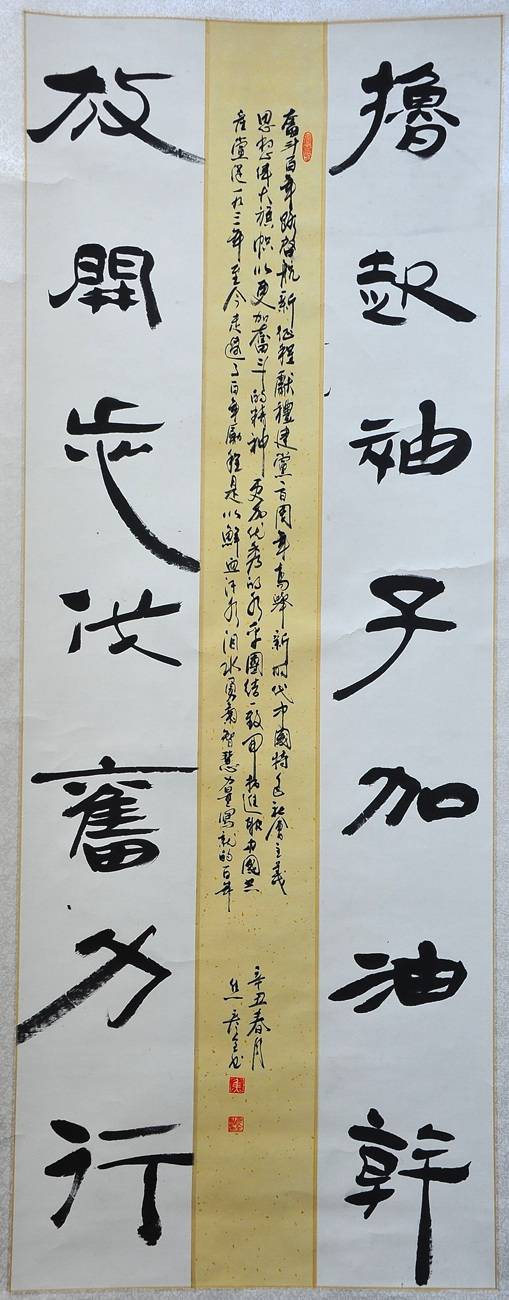 擼起袖子加油幹
奮斗百年路啓航新征程獻禮建黨百周年高舉新时代中國特色社會主義
思想偉大旗帜以更加奮斗的精神更为优秀的水平團结一致開拓進取中國共
產黨從一九二一年至今走過了百年歷程是以鮮血汗水泪水勇氣智慧力量寫就的百年
辛丑春月
放開步伐奮力行